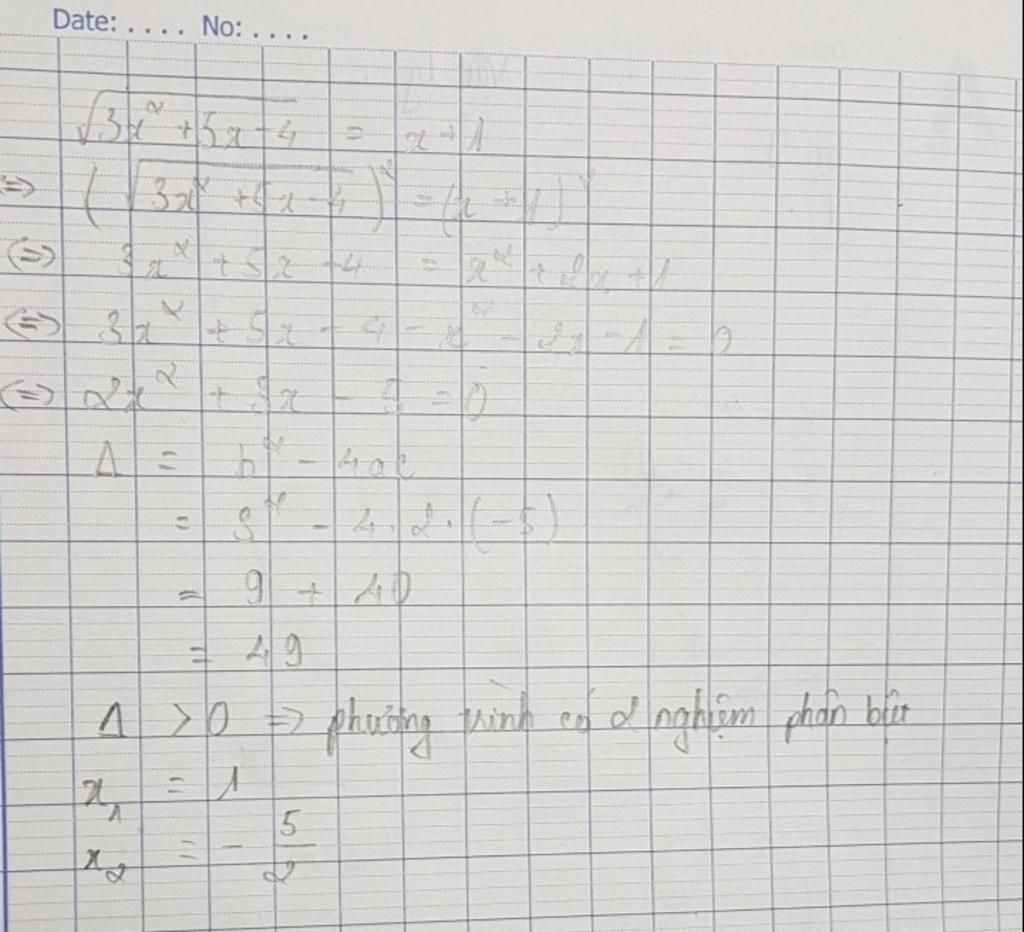 Date: .... No: ....
√(3x² + 5x - 4) = x + 1
⇔ (√(3x² + 5x - 4))² = (x + 1)²
⇔ 3x² + 5x - 4 = x² + 2x + 1
⇔ 3x² + 5x - 4 - x² - 2x - 1 = 0
⇔ 2x² + 3x - 5 = 0
Δ = b² - 4ac
= 3² - 4.2.(-5)
= 9 + 40
= 49
Δ > 0 => phương trình có 2 nghiệm phân biệt
x₁ = 1
x₂ = - 5/2